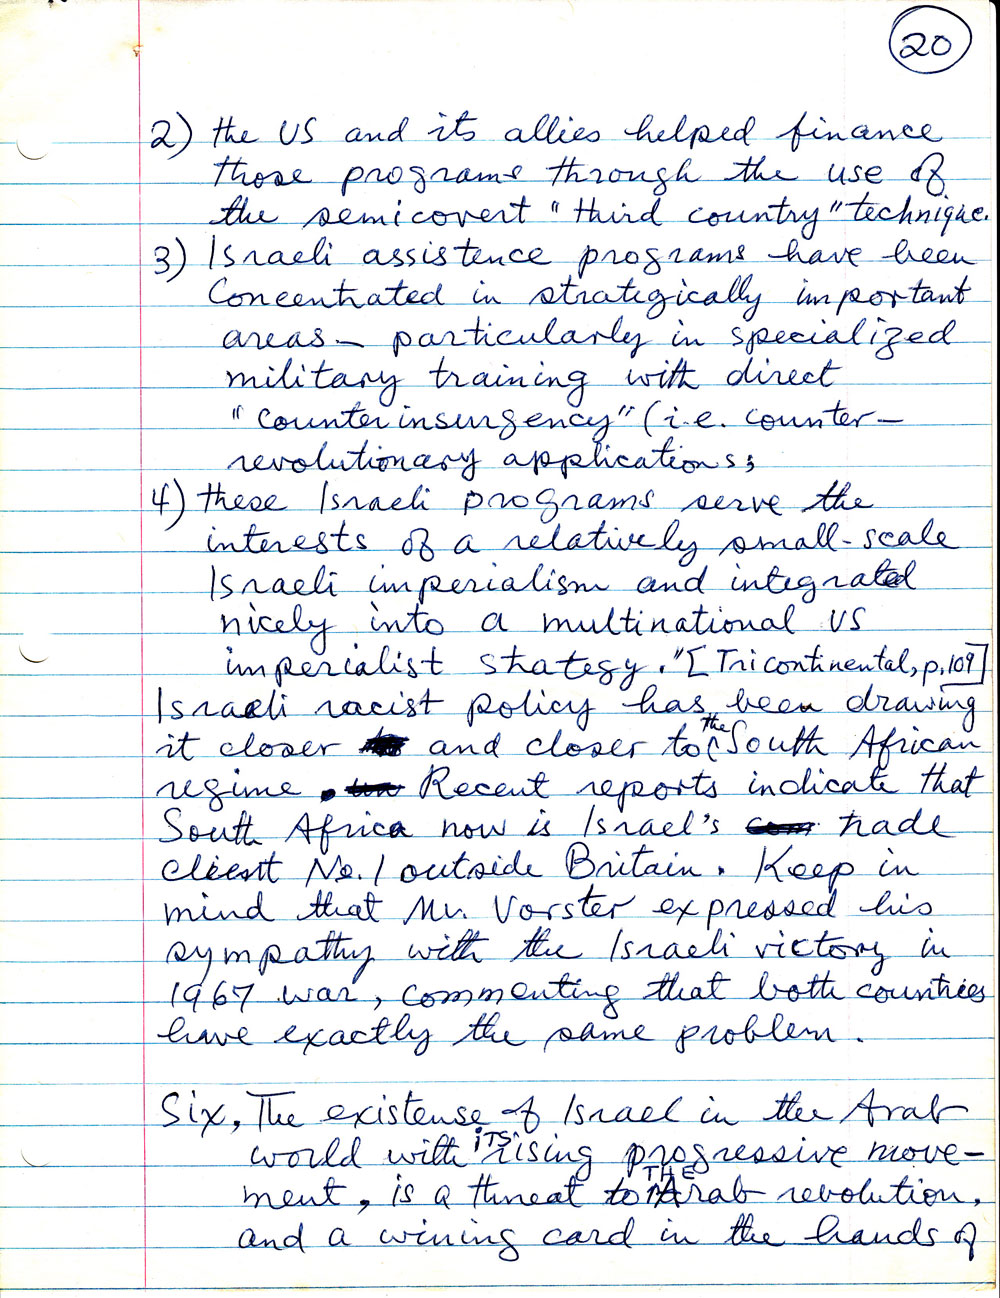 20
2) the US and its allies helped finance
those programs through the use of
the semicovert "third country" technique.
3) Israeli assistence programs have been
Concentrated in strategically important
areas — particularly in specialized
military training with direct
"counterinsurgency" (i.e. counter-
revolutionary applications;
4) these Israeli programs serve the
interests of a relatively small-scale
Israeli imperialism and integrated
nicely into a multinational US
imperialist strategy." [Tricontinental, p. 109]
Israeli racist policy has been drawing
it closer and closer to the South African
regime. Recent reports indicate that
South Africa now is Israel's trade
client No. 1 outside Britain. Keep in
mind that Mr. Vorster expressed his
sympathy with the Israeli victory in
1967 war, commenting that both countries
have exactly the same problem.
Six, The existense of Israel in the Arab
world with iTS rising progressive move-
ment, is a threat to THE Arab revolution,
and a wining card in the hands of